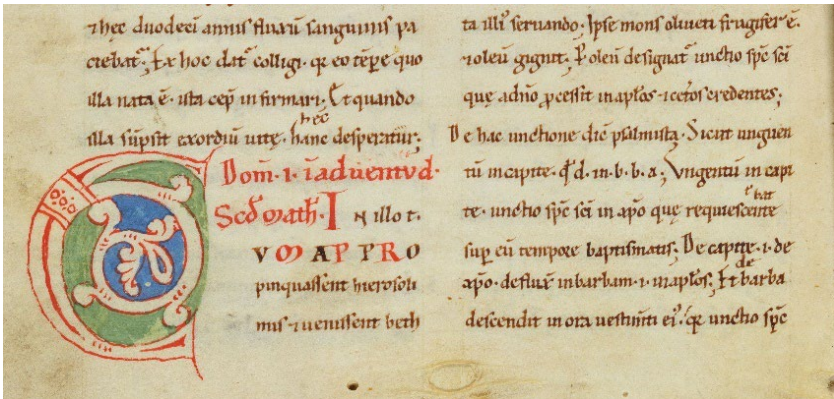 ⁊ hec duodeci annis fluxũ sanguinis pa
ciebat᷑. Ex hoc dat᷑ colligi. qđ eo tẽpr̃e quo
illa nata ẽ. ista cep̃ infirmari. Et quando
illa sũpsit exordiũ uitę. hanc desperatur;
hęc
Dom̃. i. ĩ aduentu d.
Scđ math̃. In illo t.
VM APPRO
pinquassent hierosoli
mis. ⁊ uenissent beth
ta illi᷒ seruando. Ipse mons oliueti frugifer ẽ.
⁊ oleũ gignit. P̲ oleũ designat᷑ unctio sp̃c sc̃i
quę a dño p̲cessit in ap̃los. ⁊ cet̃os credentes;
De hac unctione dic̃ psalmista. Sicut unguen
tũ in capite. q̃ d. in b. b. a; Vngentũ in capi
te. unctio sp̃c sc̃i in xp̃o quę requiescente
erat
sup̲ eũ tempore baptismatis; De capite. i. de
xp̃o. deflux̃ in barbam. i. in ap̃los; Et barba
de
descendit in ora uestimti ei᷒. qđ unctio sp̃c